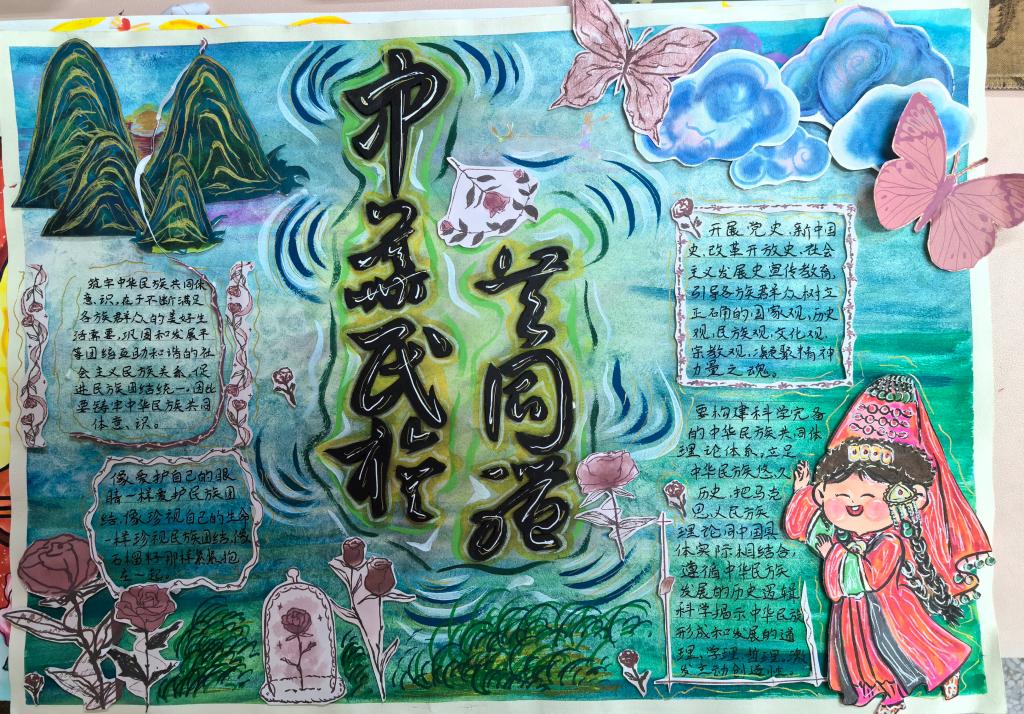 中华民族
共同范
筑牢中华民族共同体
意识，在于不断满足
各族群众的美好生
活需要，巩固和发展平
等团结互助和谐的社
会主义民族关系，促
进民族团结统一，因此
要铸牢中华民族共同
体意识。
像爱护自己的眼
睛一样爱护民族团
结，像珍视自己的生命
一样珍视民族团结，像
石榴籽那样紧紧抱
在一起。
开展党史、新中国
史、改革开放史、社会
主义发展史宣传教育，
引导各族群众树立
正确的国家观、历史
观、民族观、文化观、
宗教观，凝聚精神
力量之魂。
要构建科学完备
的中华民族共同体
理论体系，立足
中华民族悠久
历史，把马克
思主义民族
理论同中国具
体实际相结合，
遵循中华民族
发展的历史逻辑
科学揭示中华民族
形成和发展的道
理、学理、哲理，激
发主动创造性。